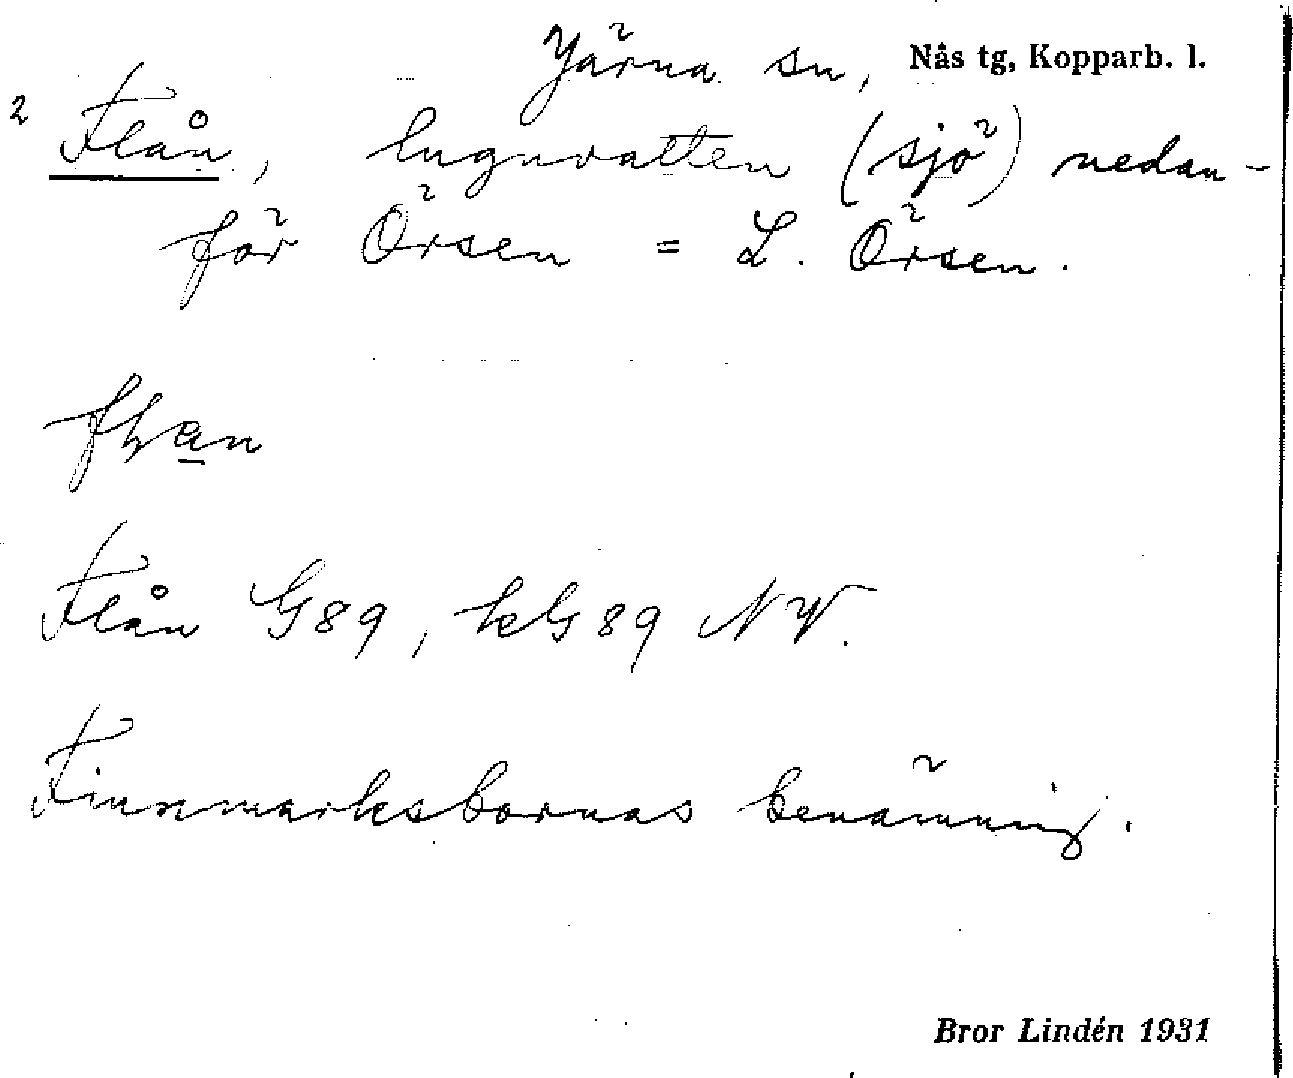 Järna sn, Nås tg, Kopparb. l.
2 Flån, lugnvatten (sjö) nedan-
för Örsen = L. Örsen.
Flån G89, kG89 NV.
Finnmarksbornas benämning.
Bror Lindén 1931